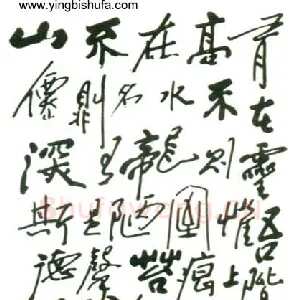 www.yingbishufa.com
山不在高有
僊則名水不在
深有龍則靈
斯是陋室惟吾
德馨苔痕上階